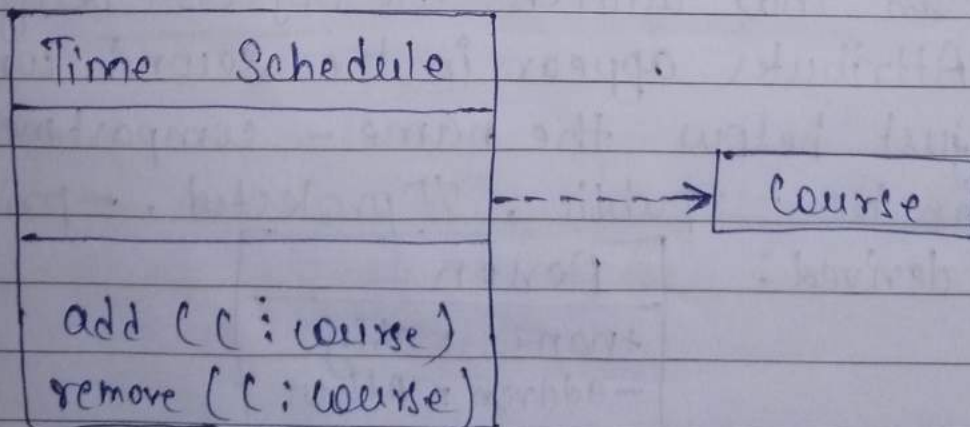 Time Schedule
Course
add (C : course)
remove (C : course)